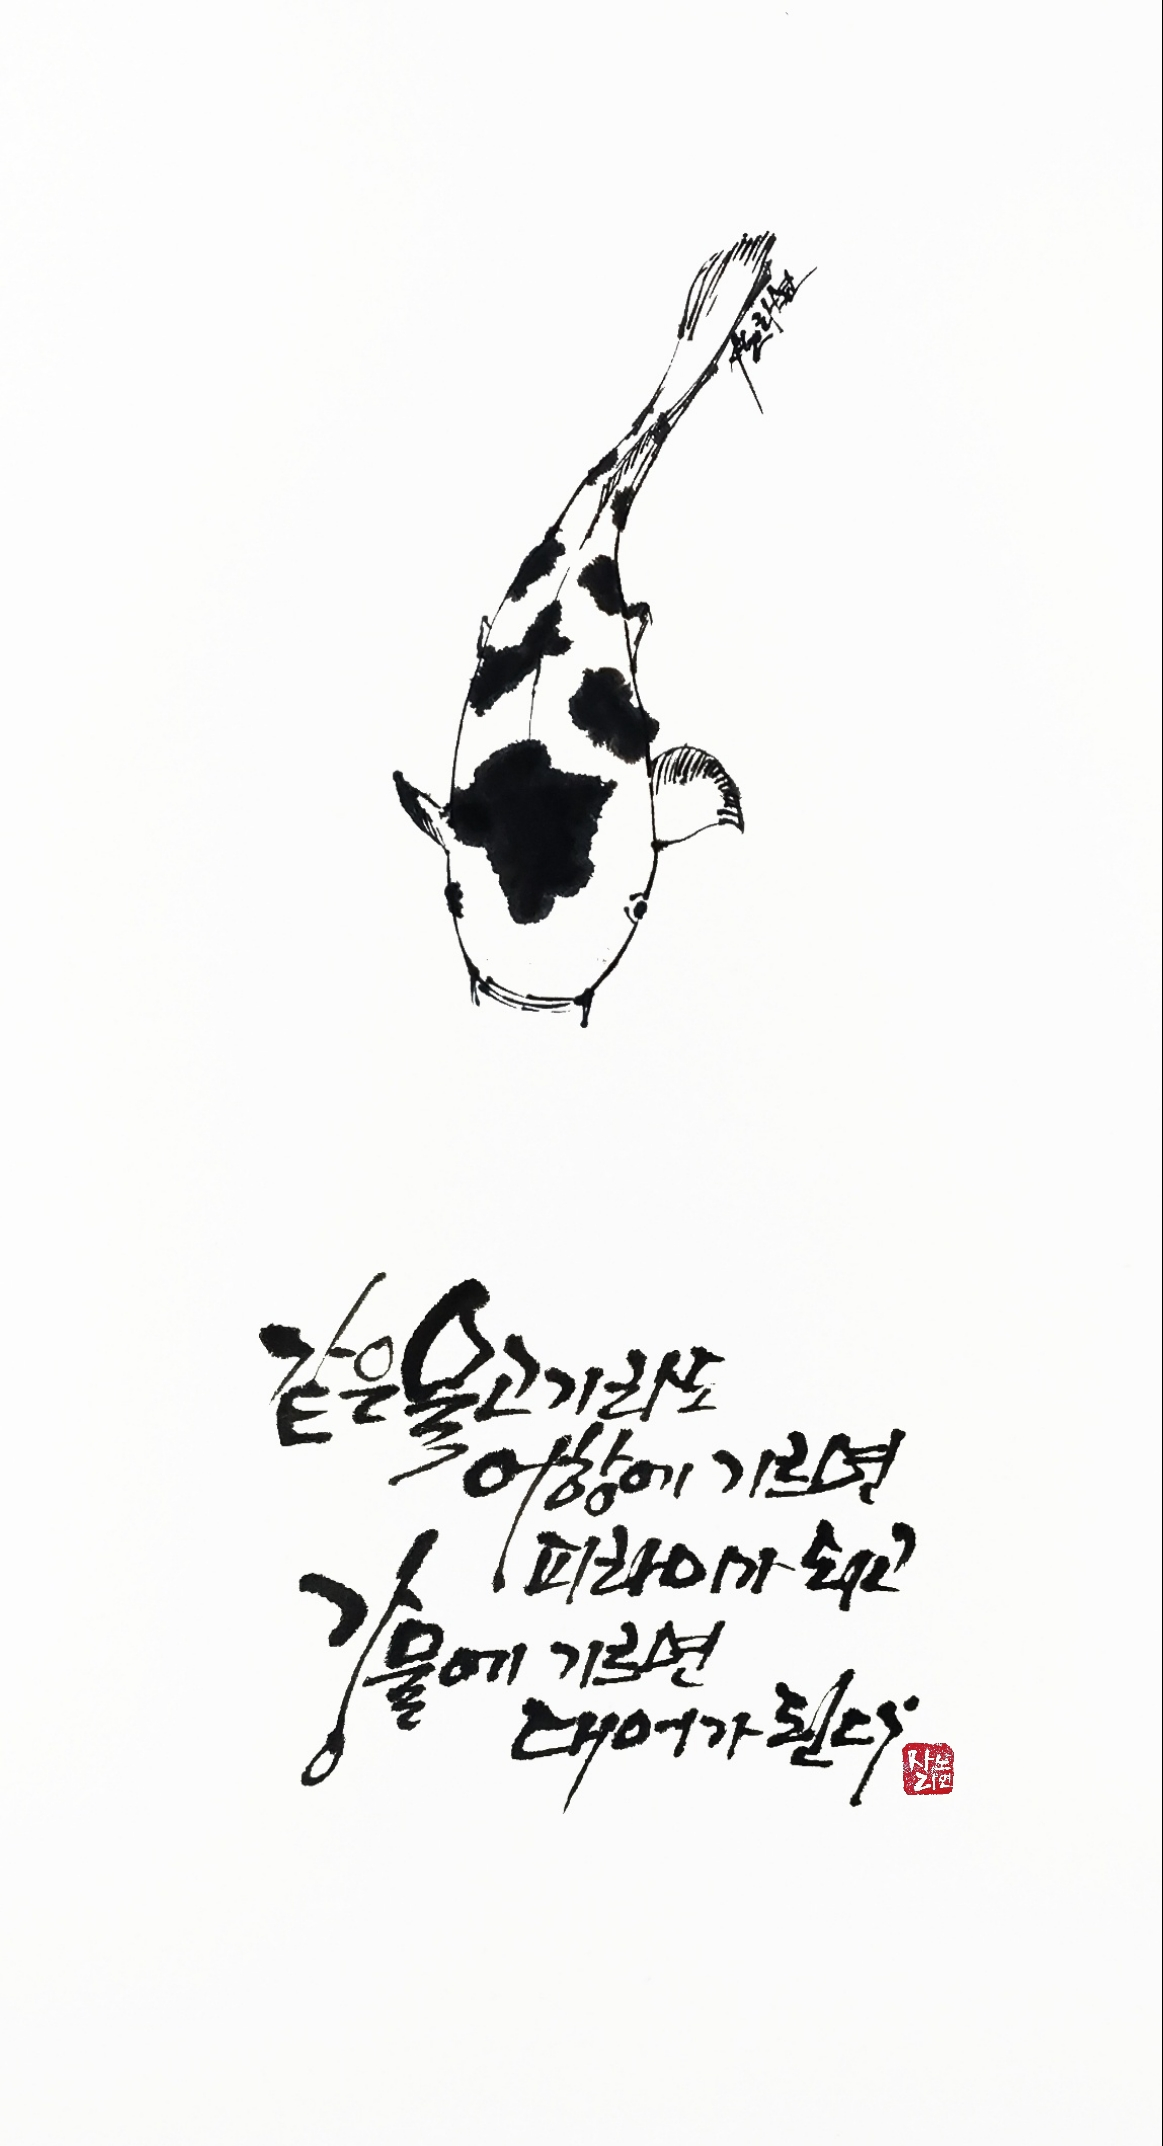 같은 물고기라도
어항에 기르면
피라미가 되고
강물에 기르면
대어가 된다